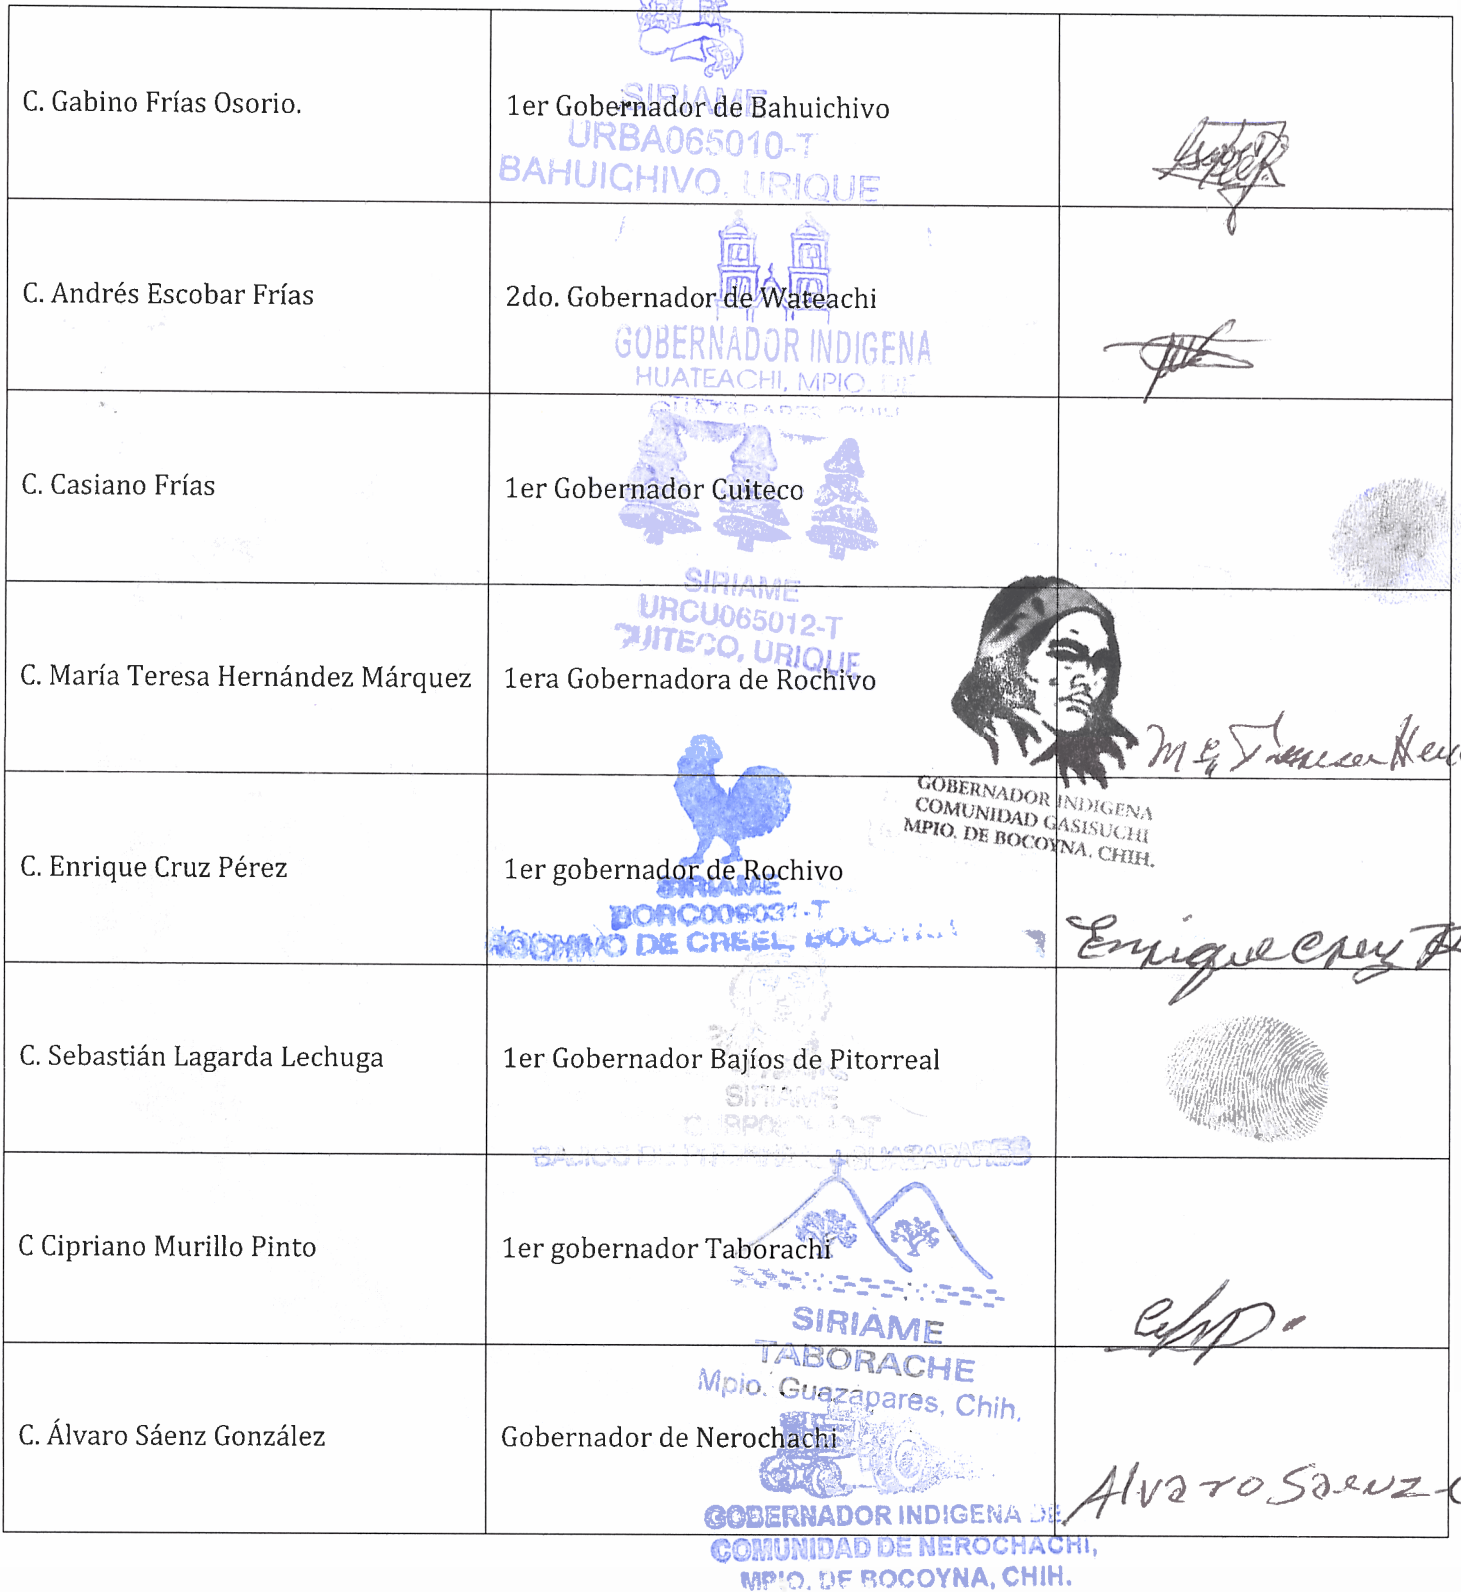 C. Gabino Frías Osorio.
1er Gobernador de Bahuichivo
SIRIAME
URBA065010-T
BAHUICHIVO, URIQUE
C. Andrés Escobar Frías
2do. Gobernador de Wateachi
GOBERNADOR INDIGENA
HUATEACHI, MPIO. DE
GUAZAPARES, CHIH
C. Casiano Frías
1er Gobernador Cuiteco
SIRIAME
URCU065012-T
CUITECO, URIQUE
C. María Teresa Hernández Márquez
1era Gobernadora de Rochivo
GOBERNADOR INDIGENA
COMUNIDAD GASISUCHI
MPIO. DE BOCOYNA, CHIH.
C. Enrique Cruz Pérez
1er gobernador de Rochivo
SIRIAME
DE CREEL, BOCOYNA
Enrique Cruz
C. Sebastián Lagarda Lechuga
1er Gobernador Bajíos de Pitorreal
SIRIAME
GUAZAPARES
C Cipriano Murillo Pinto
1er gobernador Taborachi
SIRIAME
TABORACHE
Mpio. Guazapares, Chih.
C. Álvaro Sáenz González
Gobernador de Nerochachi
Alvaro Saenz
GOBERNADOR INDIGENA DE
COMUNIDAD DE NEROCHACHI,
MPIO. DE BOCOYNA, CHIH.